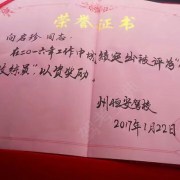 荣誉证书
向君珍同志:
在二〇一六年工作中成绩突出被评为"
教练员"以资奖励
州恒安驾校
2017年1月22日